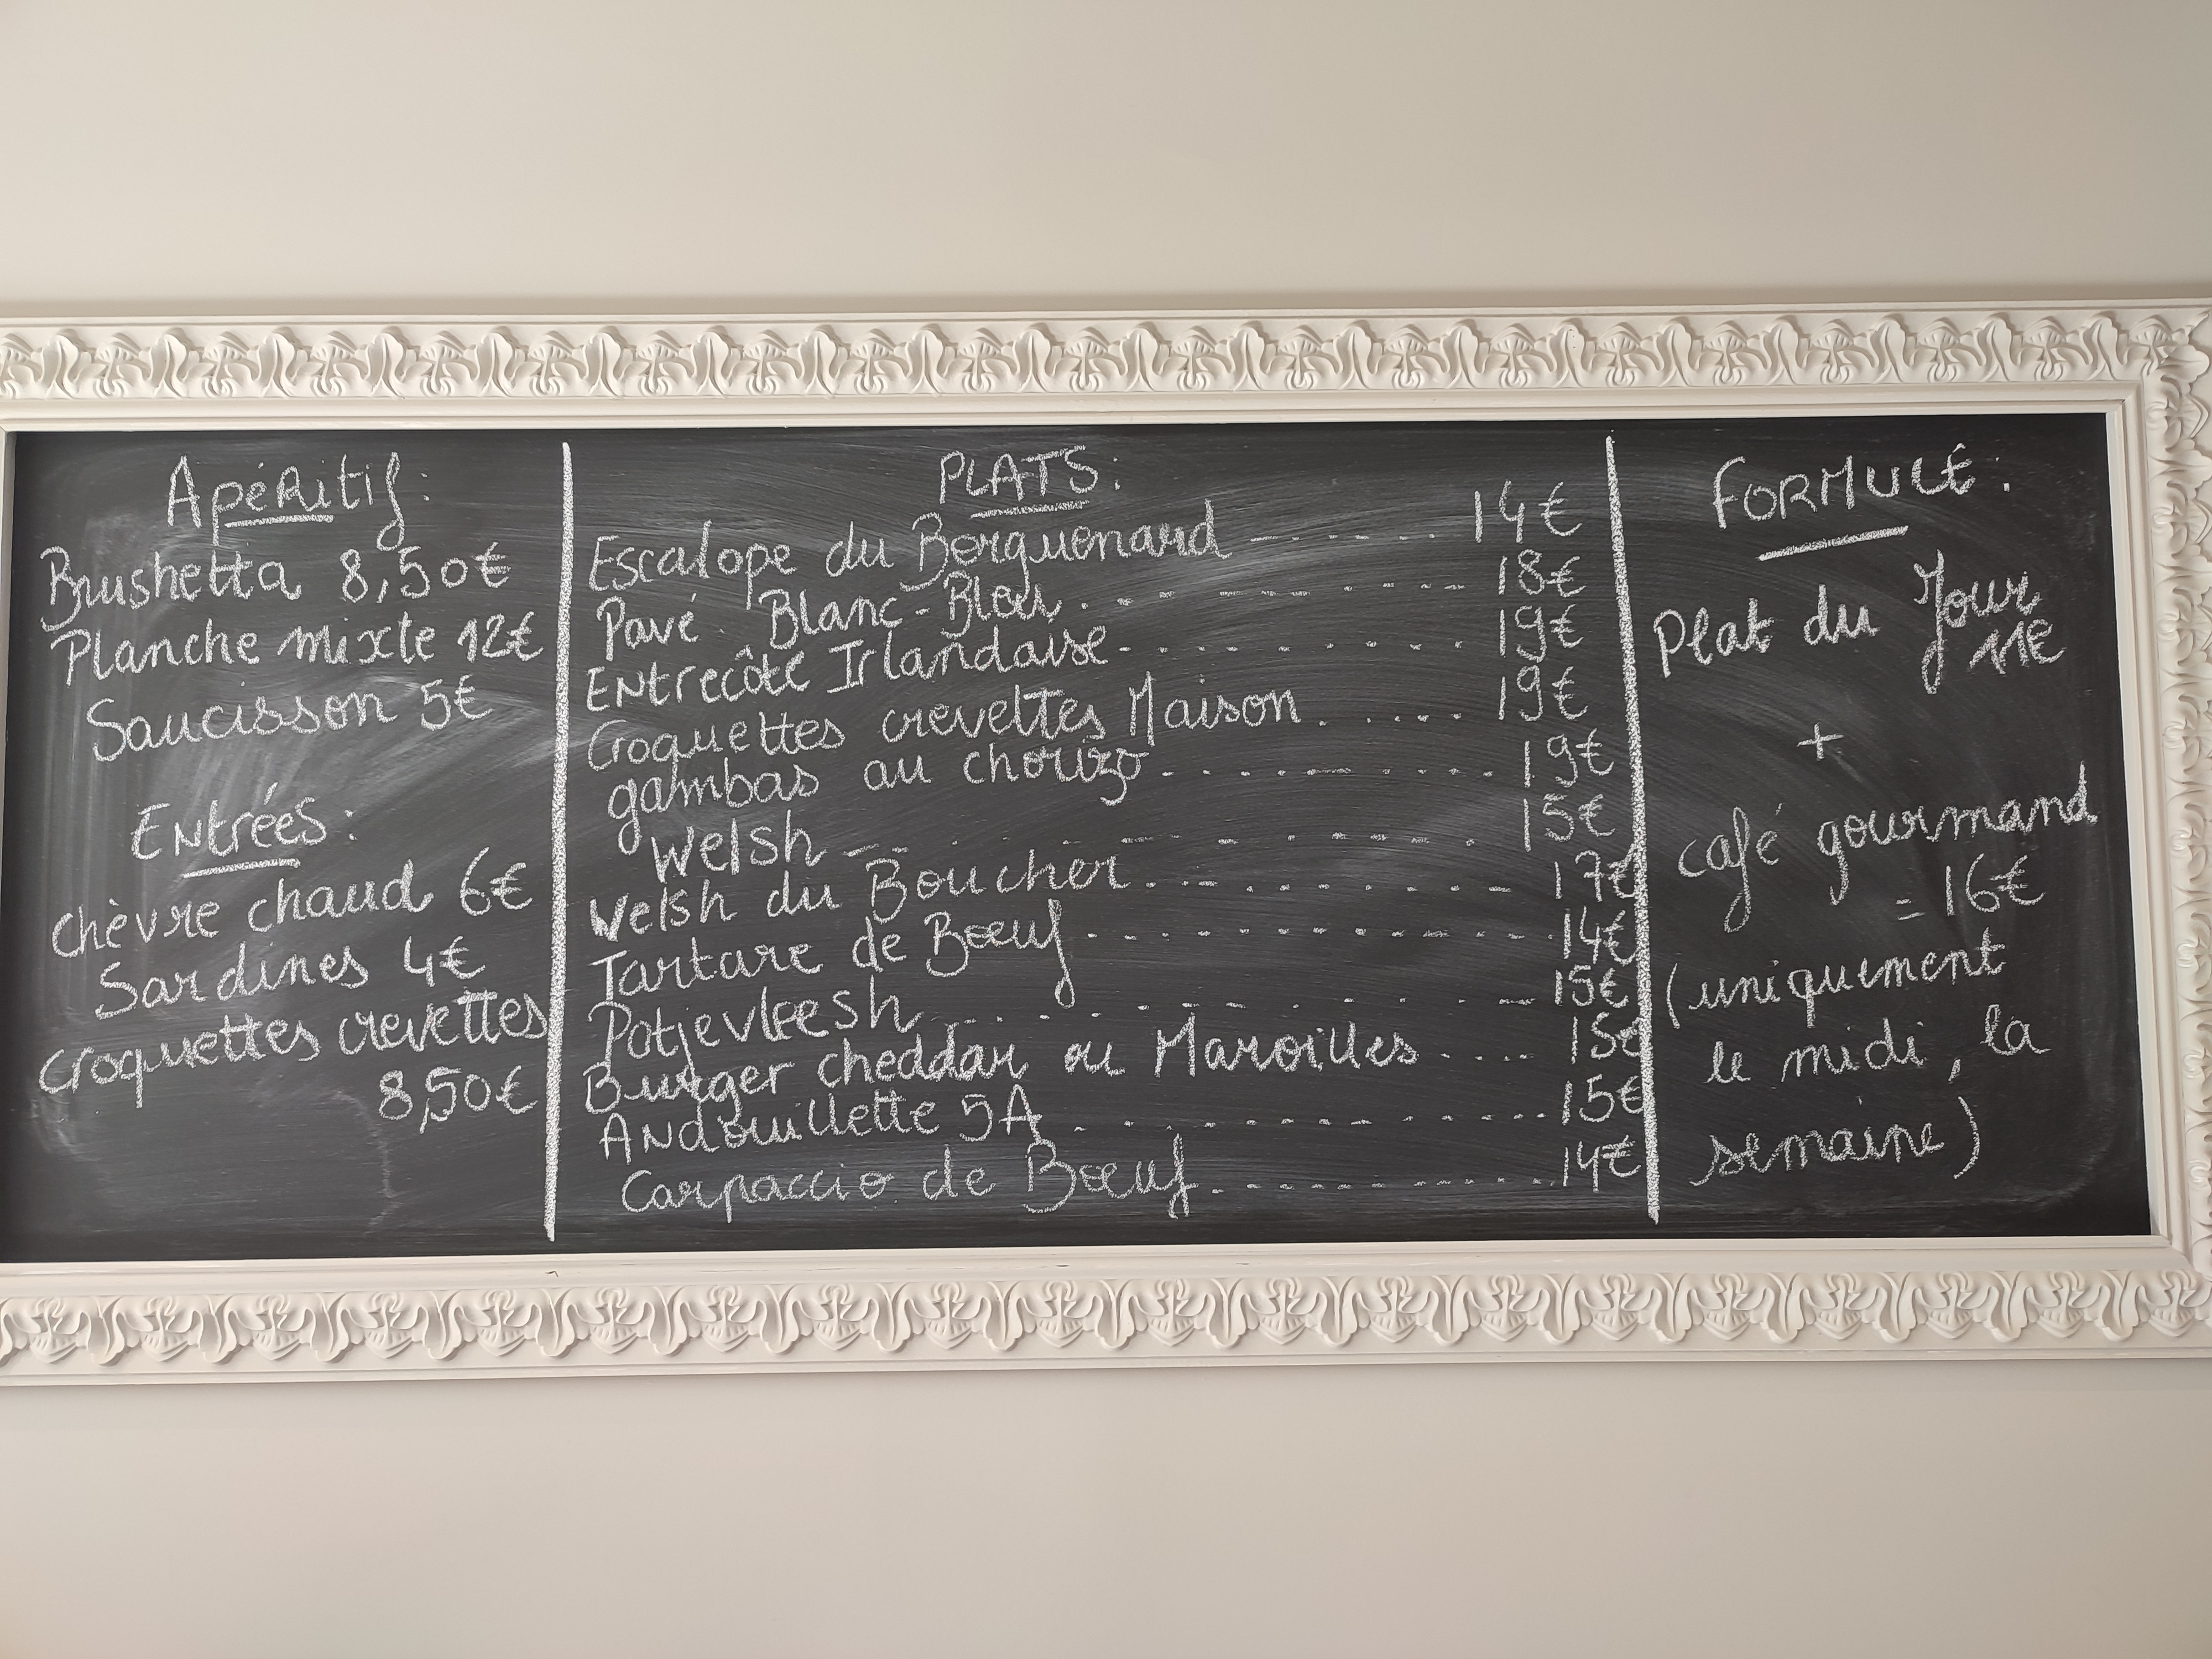 Apéritif:
Brushetta 8,50€
Planche mixte 12€
Saucisson 5€
Entrées:
chèvre chaud 6€
Sardines 4€
croquettes crevettes
8,50€
PLATS:
Escalope du Berguenard ------- 14€
Pavé Blanc-Bleu ------- 18€
Entrecôte Irlandaise ------- 19€
Croquettes crevettes Maison ..... 19€
gambas au chorizo ------- 19€
Welsh ------- 15€
Welsh du Boucher ------- 17€
Tartare de Bœuf ------- 14€
Potjevleesh ------- 15€
Burger cheddar ou Maroilles .... 15€
Andouillette 5A ------- 15€
Carpaccio de Bœuf ------- 14€
FORMULE:
Plat du Jour
11€
+
café gourmand
= 16€
(uniquement
le midi, la
semaine)